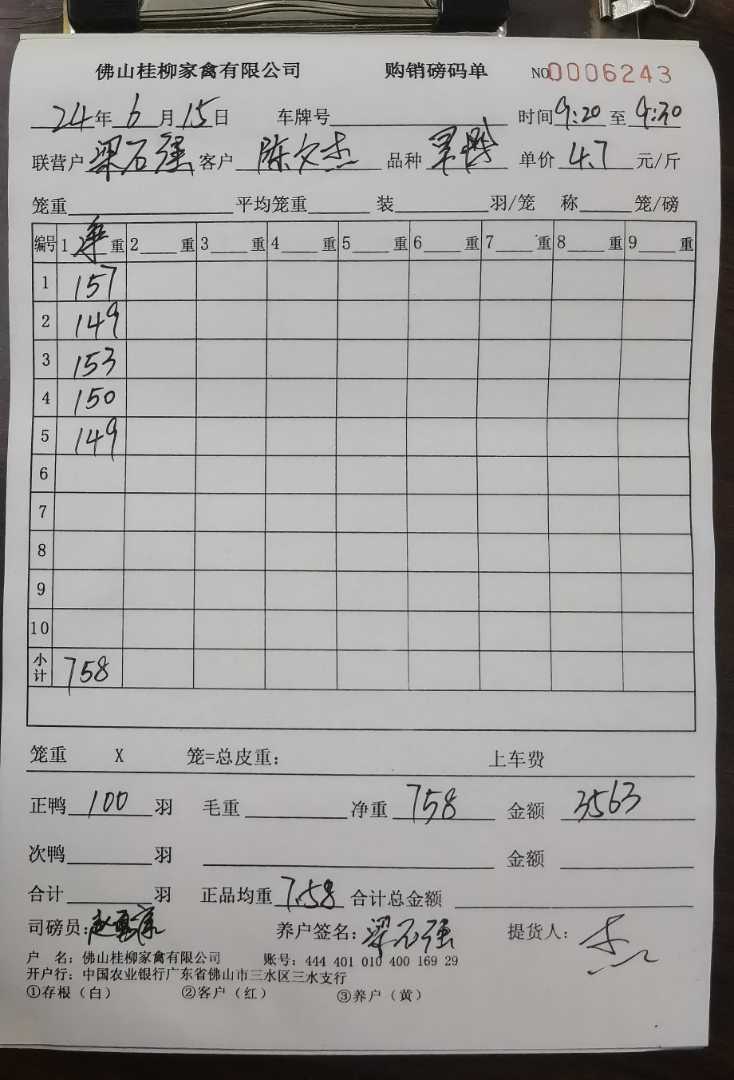 佛山桂柳家禽有限公司 购销磅码单 NO0006243
24年6月15日 车牌号 时间9:20至9:30
联营户 梁石强 客户 陈文杰 品种 单价 4.7 元/斤
笼重 平均笼重 装 羽/笼 称 笼/磅
编号 1 净 重 2 重 3 重 4 重 5 重 6 重 7 重 8 重 9 重
1 157
2 149
3 153
4 150
5 149
6
7
8
9
10
小计 758
笼重 X 笼=总皮重: 上车费
正鸭 100 羽 毛重 净重 758 金额 3563
次鸭 羽 金额
合计 羽 正品均重 7.58 合计总金额
司磅员: 养户签名: 梁石强 提货人: 杰
户 名: 佛山桂柳家禽有限公司 账号: 444 401 010 400 169 29
开户行: 中国农业银行广东省佛山市三水区三水支行
①存根(白) ②客户(红) ③养户(黄)